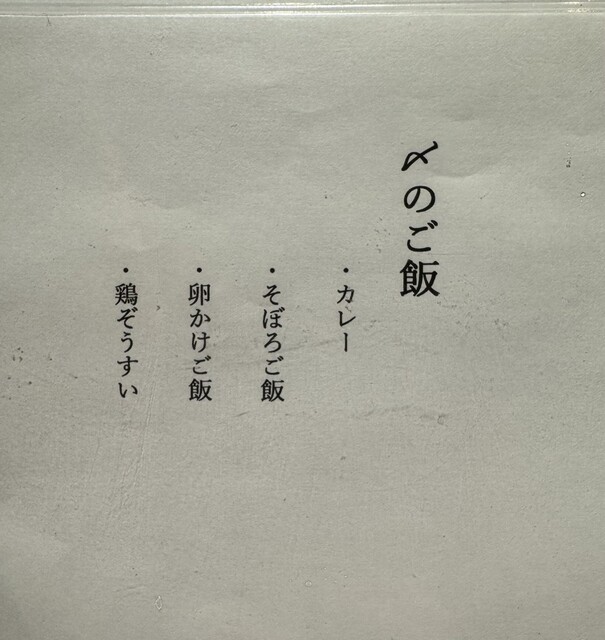 〆のご飯
・カレー
・そぼろご飯
・卵かけご飯
・鶏ぞうすい